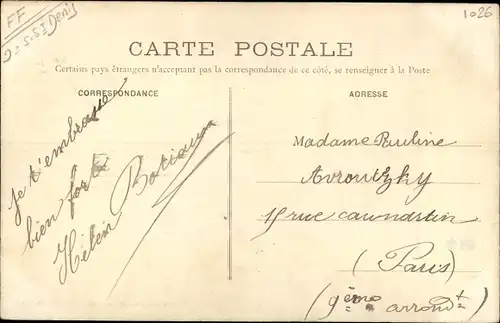 FF
D=S.St Denis
1026
CARTE POSTALE
Certains pays étrangers n'acceptant pas la correspondance de ce côté, se renseigner à la Poste
CORRESPONDANCE
je t'embrasse
bien fort
Hélèn
ADRESSE
Madame Pauline
rue
(Paris)
(9ème arrondt